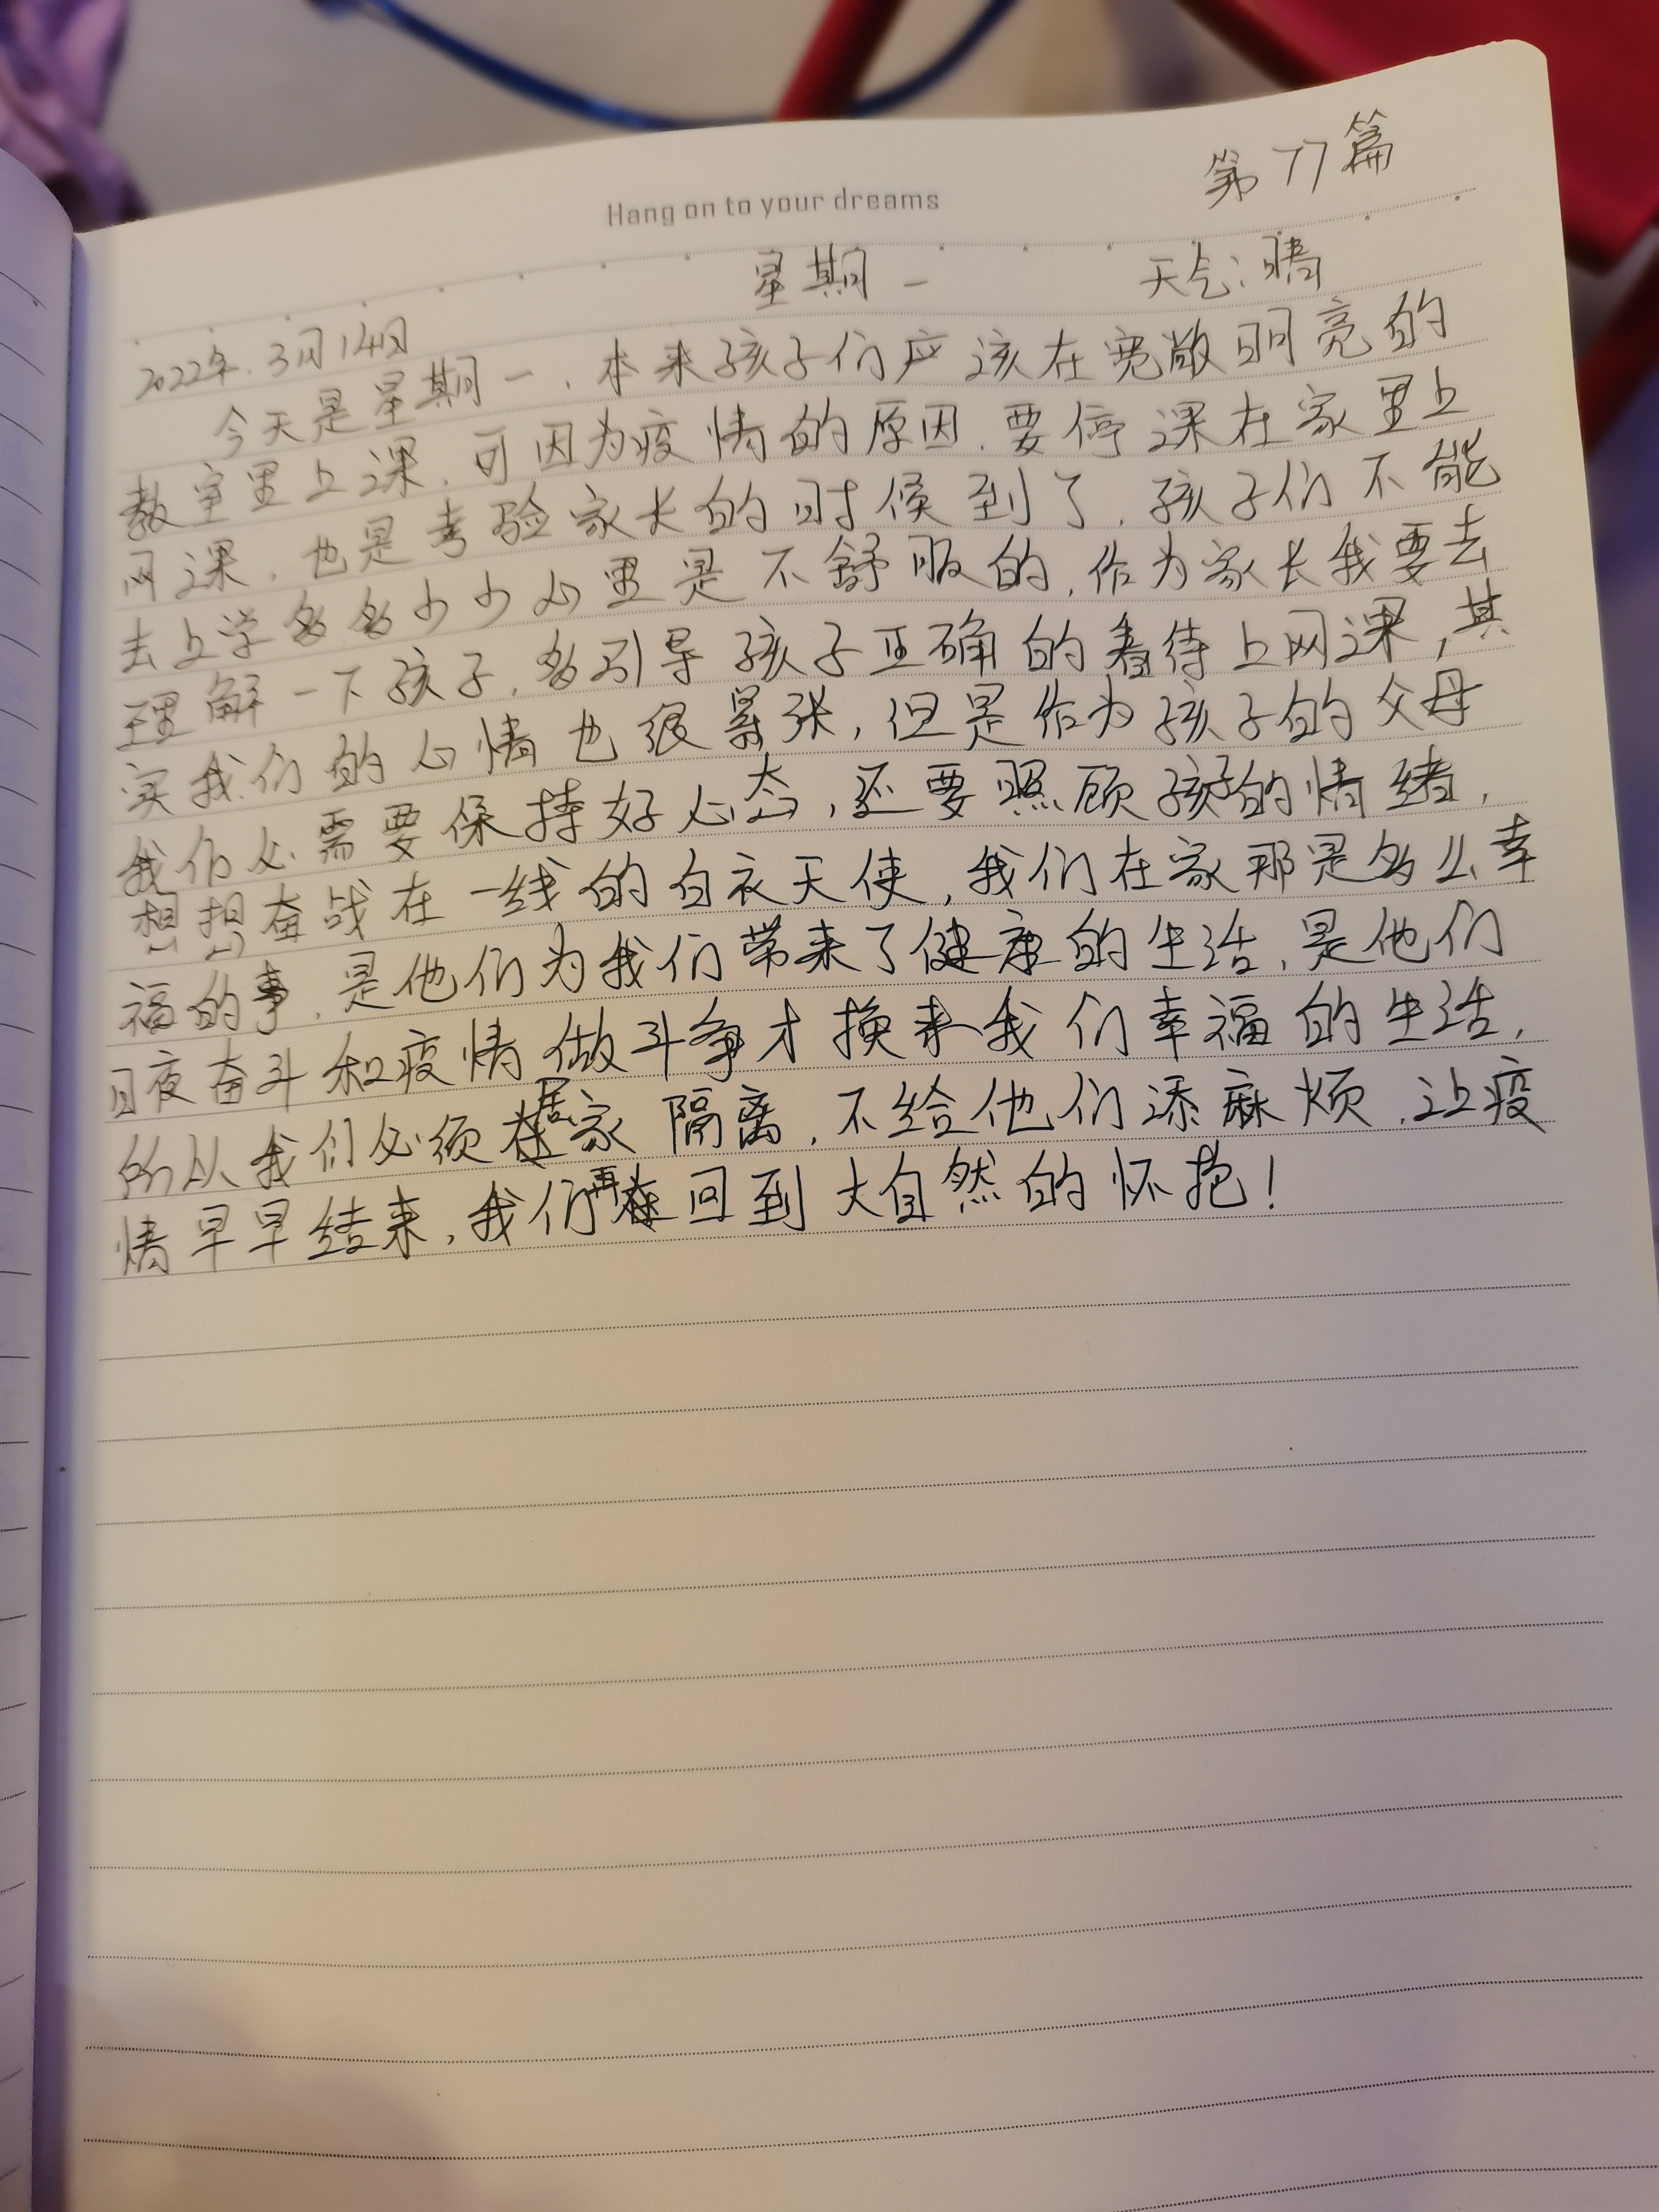 第77篇
Hang on to your dreams
2022年.3月14日 星期一 天气:晴
今天是星期一,本来孩子们应该在宽敞明亮的
教室里上课,可因为疫情的原因,要停课在家里上
网课,也是考验家长的时候到了,孩子们不能
去上学多多少少心里是不舒服的,作为家长我要去
理解一下孩子,多引导孩子正确的看待上网课,其
实我们的心情也很紧张,但是作为孩子的父母
我们必需要保持好心态,还要照顾孩子的情绪,
想想奋战在一线的白衣天使,我们在家那是多么幸
福的事,是他们为我们带来了健康的生活,是他们
日夜奋斗和疫情做斗争才换来我们幸福的生活,
所以我们必须居家隔离,不给他们添麻烦,让疫
情早早结束,我们再回到大自然的怀抱!